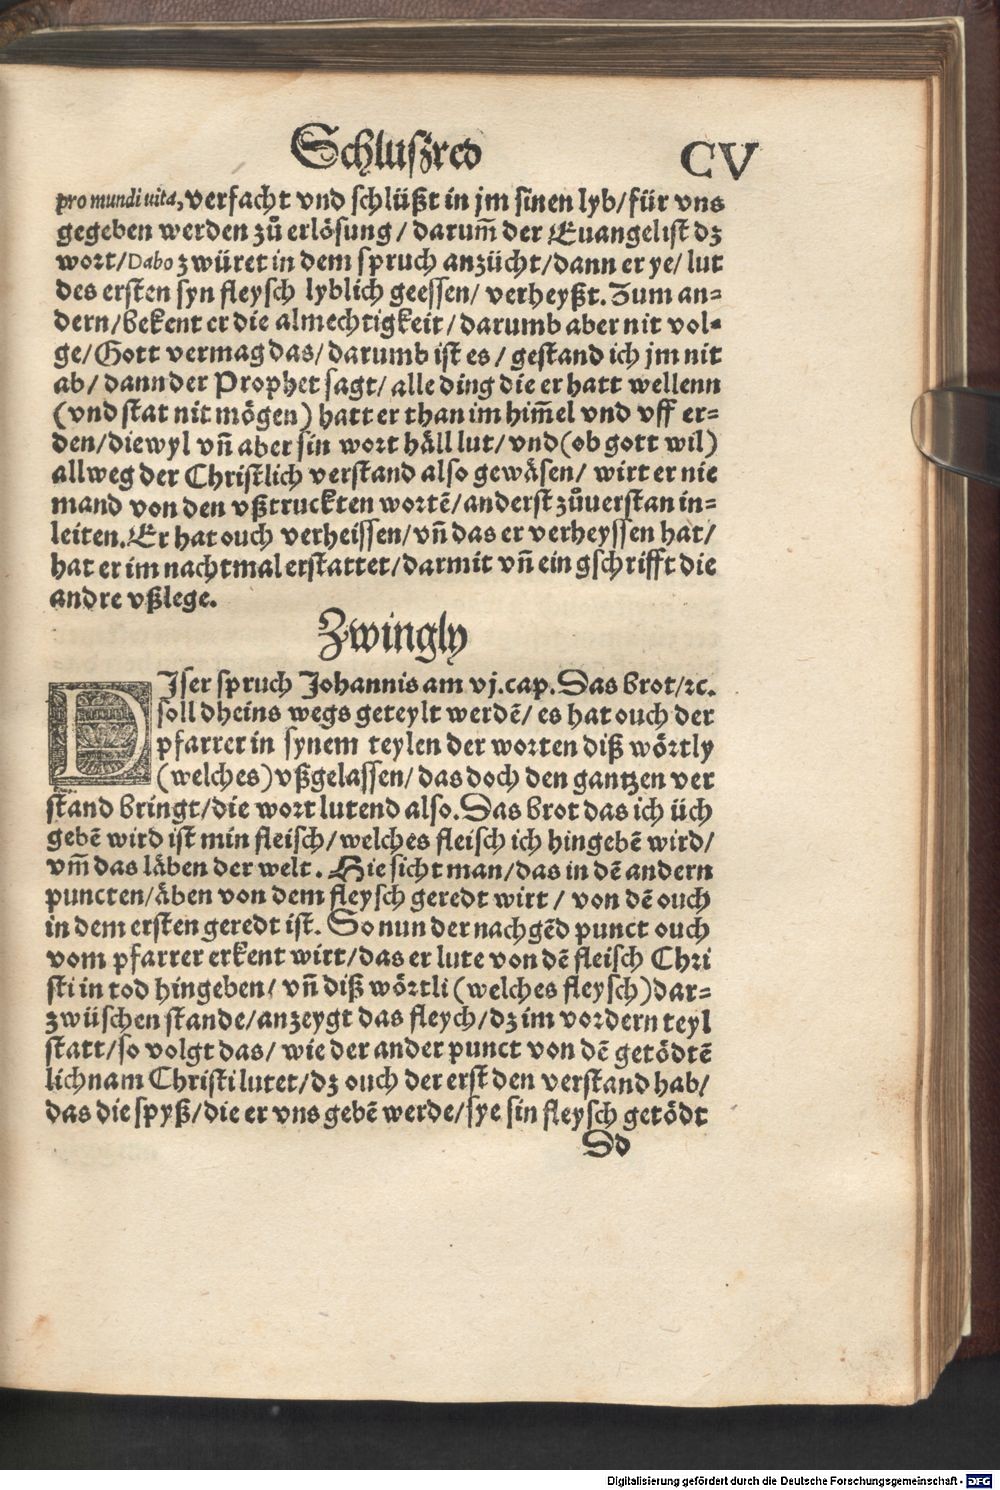 Schluszred CV
pro mundi uita, verfacht vnd schlüßt in jm sinen lyb/für vns
gegeben werden zů erlösung/ darum̃ der Euangelist dz
wort/Dabo zwüret in dem spruch anzücht/dann er ye/ lut
des ersten syn fleysch lyblich geessen/ verheyßt. Zum an-
dern/bekent er die almechtigkeit/darumb aber nit vol-
ge/Gott vermag das/darumb ist es/ gestand ich jm nit
ab/ dann der Prophet sagt/ alle ding die er hatt wellenn
(vnd stat nit mögen) hatt er than im him̃el vnd vff er-
den/diewyl vñ aber sin wort häll lut/vnd(ob gott wil)
allweg der Christlich verstand also gewäsen/ wirt er nie
mand von den vßtruckten wortẽ/anderst zůuerstan in-
leiten. Er hat ouch verheissen/vñ das er verheyssen hat/
hat er im nachtmal erstattet/darmit vñ ein gschrifft die
andre vßlege.
Zwingly
DIser spruch Johannis am vj.cap. Das brot/ꝛc.
soll dheins wegs geteylt werdẽ/ es hat ouch der
pfarrer in synem teylen der worten diß wörtly
(welches) vßgelassen/ das doch den gantzen ver
stand bringt/die wort lutend also. Das brot das ich üch
gebẽ wird ist min fleisch/welches fleisch ich hingebẽ wird/
vm̃ das läben der welt. Hie sicht man/das in dẽ andern
puncten/äben von dem fleysch geredt wirt/ von dẽ ouch
in dem ersten geredt ist. So nun der nachgẽd punct ouch
vom pfarrer erkent wirt/das er lute von dẽ fleisch Chri
sti in tod hingeben/ vñ diß wörtli (welches fleysch)dar-
zwüschen stande/anzeygt das fleych/dz im vordern teyl
statt/so volgt das/ wie der ander punct von dẽ getödtẽ
lichnam Christi lutet/dz ouch der erst den verstand hab/
das die spyß/die er vns gebẽ werde/sye sin fleysch getödt
Dd
Digitalisierung gefördert durch die Deutsche Forschungsgemeinschaft - DFG